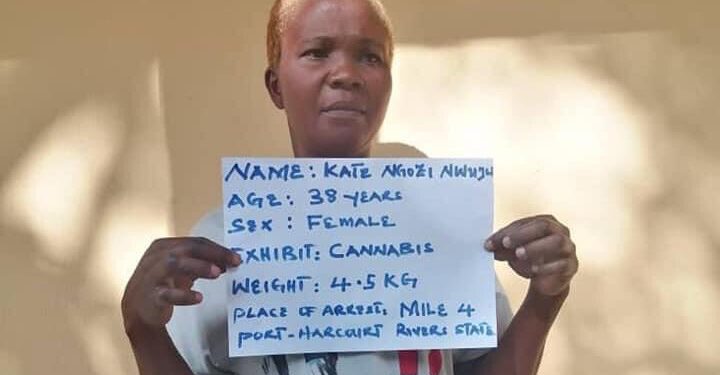 NAME: KATE NGOZI NWUJU
AGE: 38 YEARS
SEX: FEMALE
EXHIBIT: CANNABIS
WEIGHT: 4.5 KG
PLACE OF ARREST: MILE 4
PORT-HARCOURT RIVERS STATE